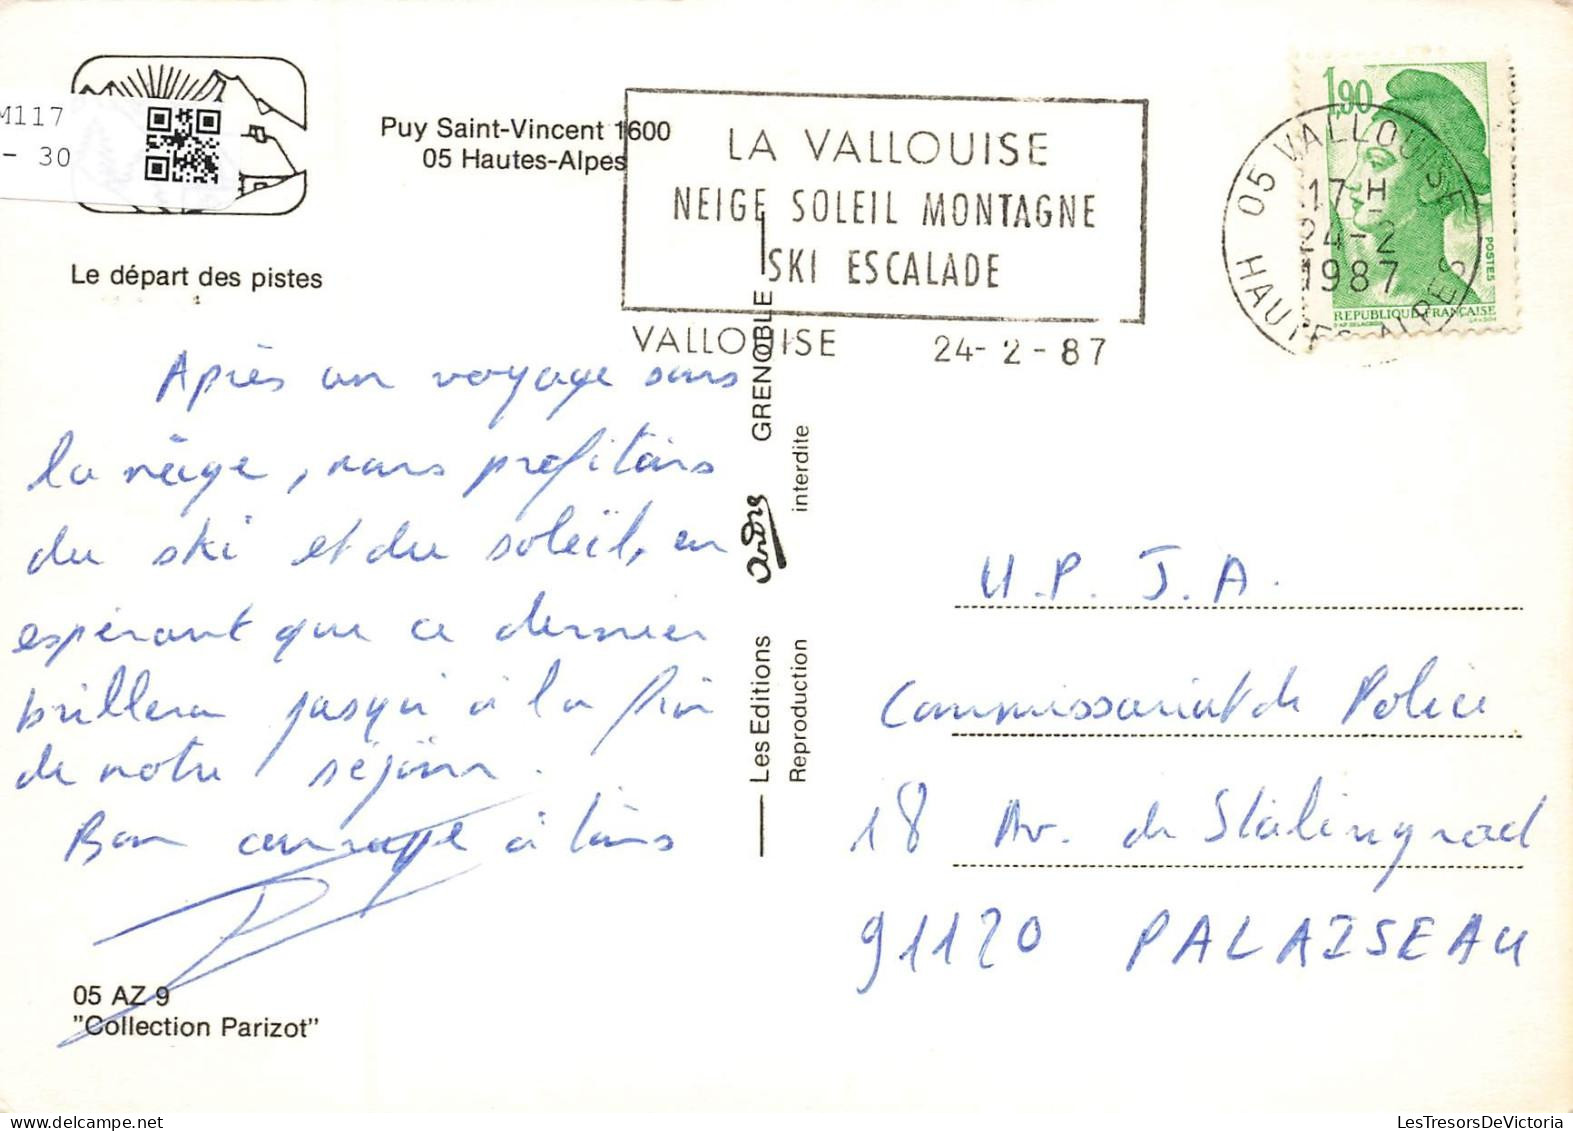 M117
- 30
Puy Saint-Vincent 1600
05 Hautes-Alpes
Le départ des pistes
LA VALLOUISE
NEIGE SOLEIL MONTAGNE
SKI ESCALADE
VALLOUISE 24-2-87
1,90
05 VALLOUISE
17 H
24-2
1987
HAUTES-ALPES
POSTES
REPUBLIQUE FRANÇAISE
Après un voyage sous
la neige, nous profitons
du ski et du soleil, en
espérant que ce dernier
brillera jusqu'à la fin
de notre séjour.
Bon courage à tous
Les Editions André GRENOBLE
Reproduction interdite
U.P.J.A.
Commissariat de Police
18 Av. de Stalingrad
91120 PALAISEAU
05 AZ 9
"Collection Parizot"
LesTresorsDeVictoria.com